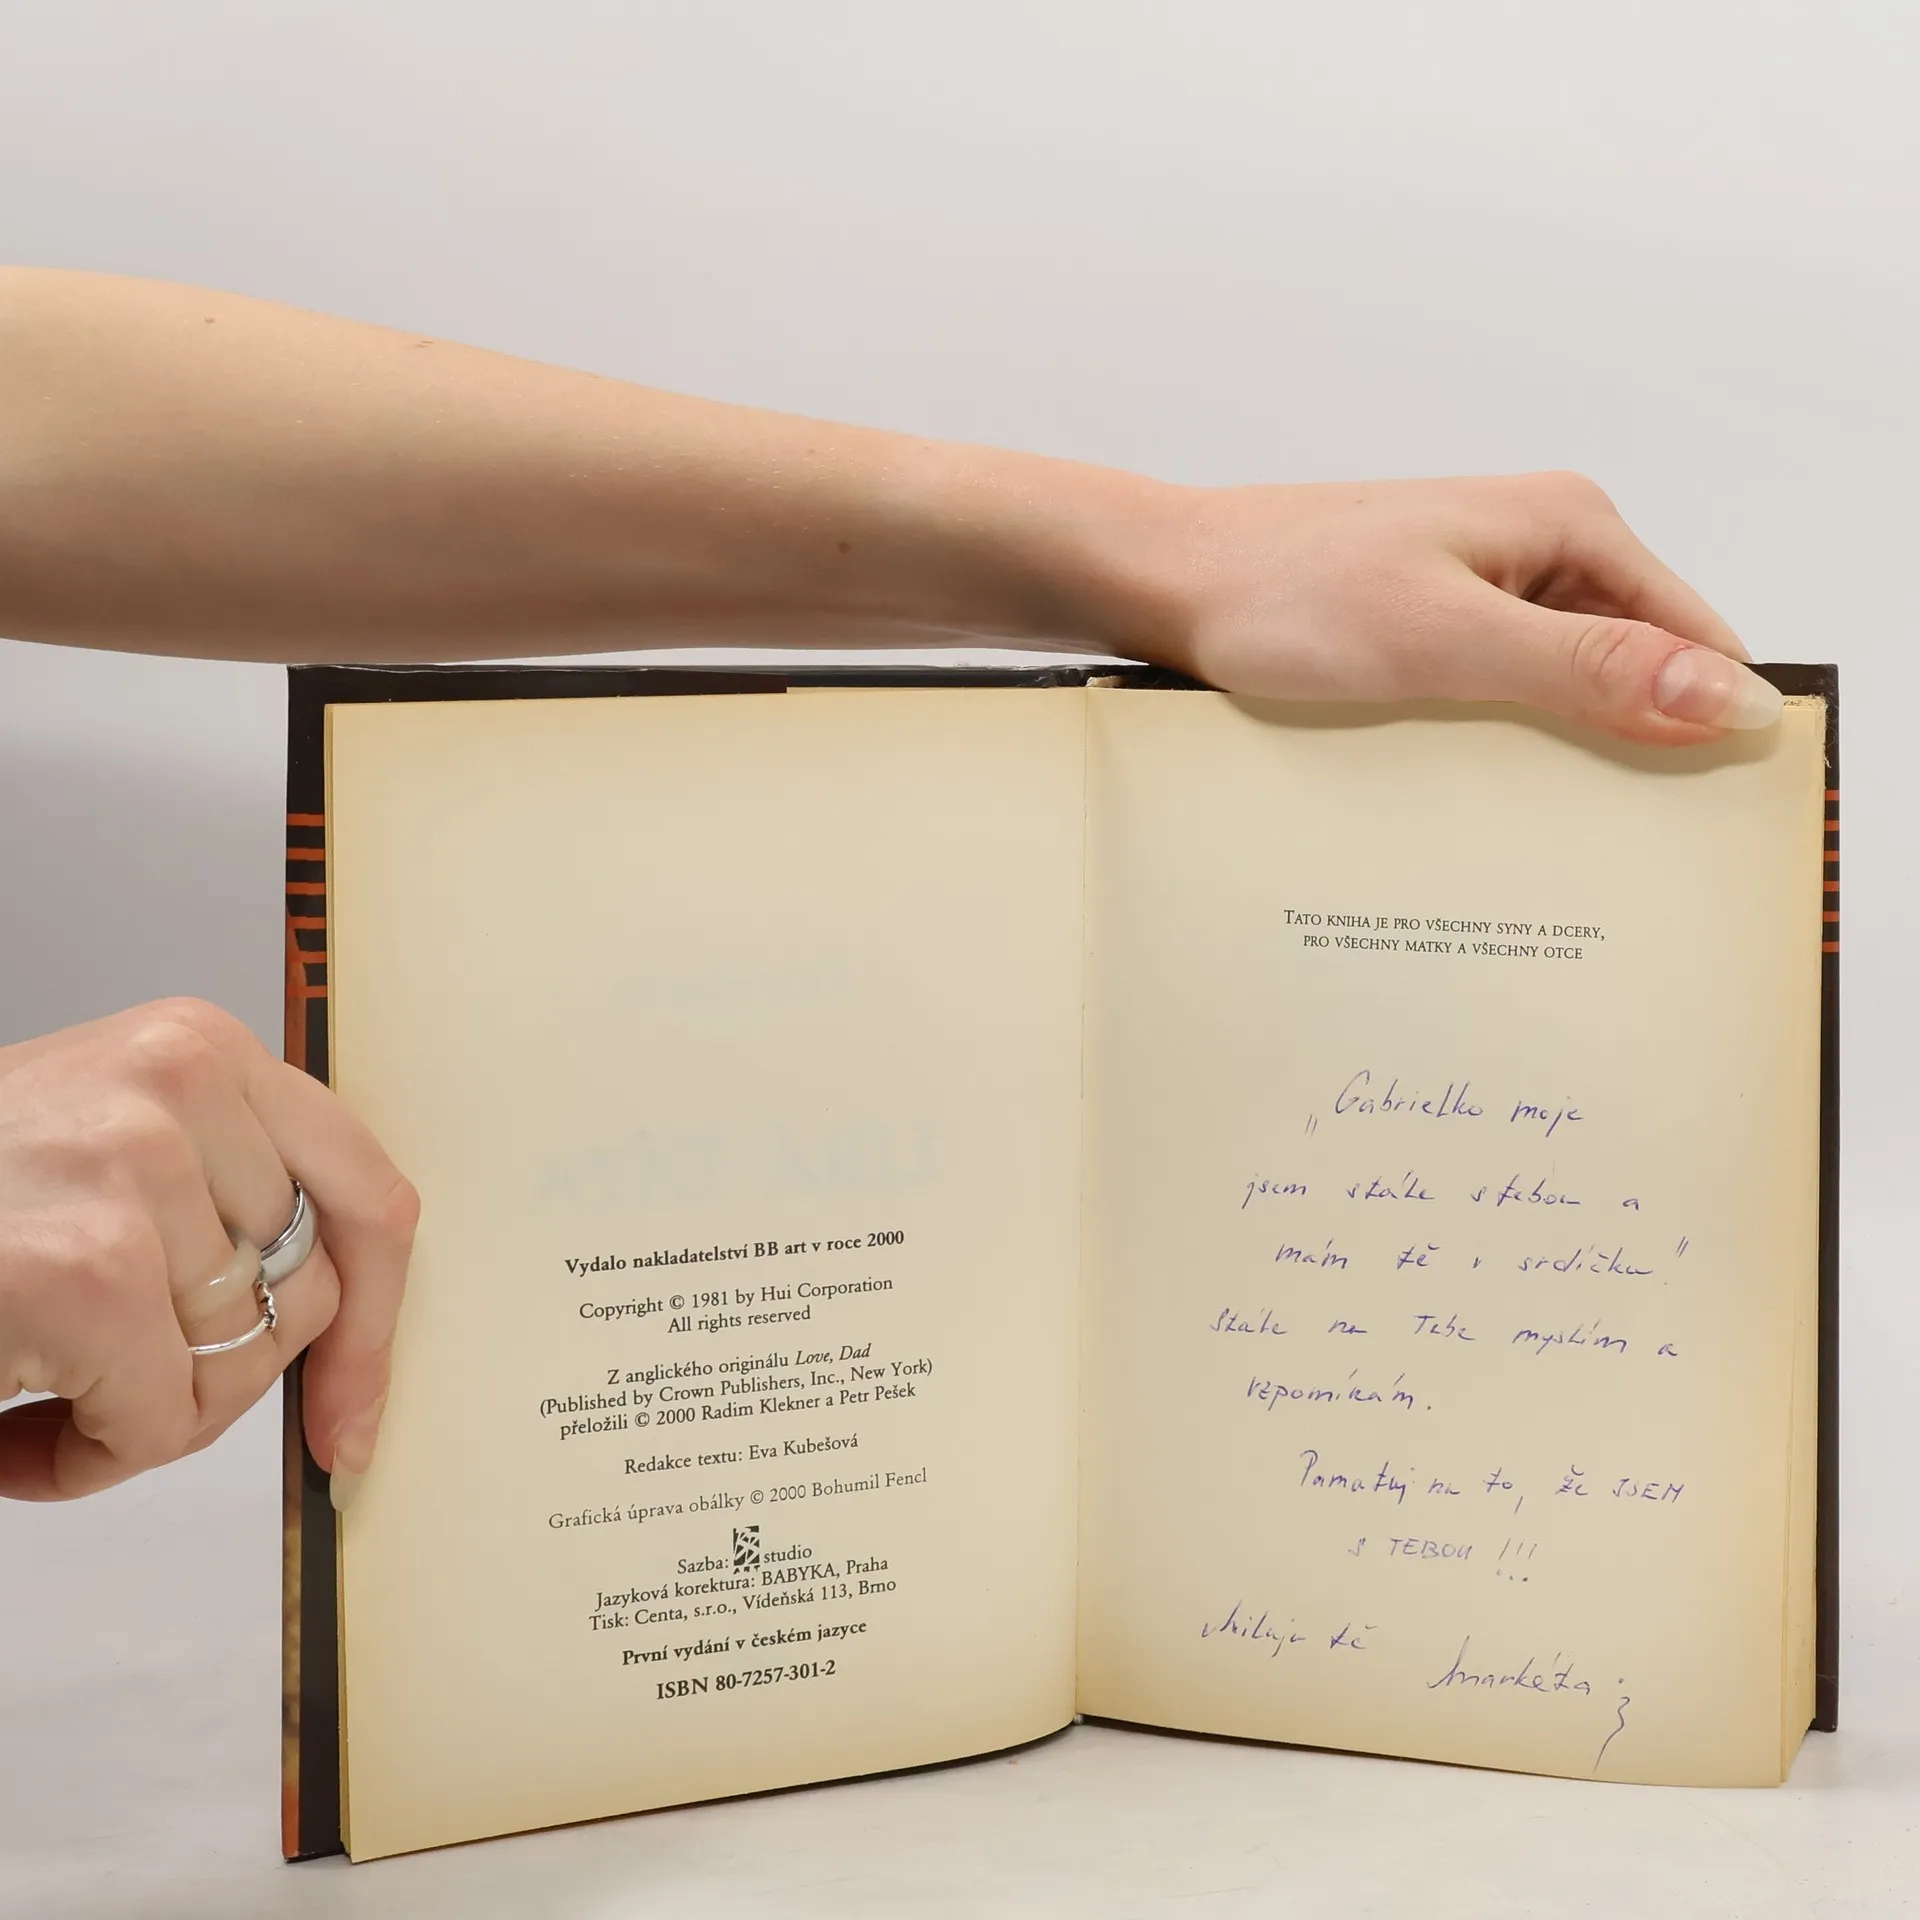 Vydalo nakladatelství BB art v roce 2000
Copyright © 1981 by Hui Corporation
All rights reserved
Z anglického originálu Love, Dad
(Published by Crown Publishers, Inc., New York)
přeložili © 2000 Radim Klekner a Petr Pešek
Redakce textu: Eva Kubešová
Grafická úprava obálky © 2000 Bohumil Fencl
Sazba: BB ART studio
Jazyková korektura: BABYKA, Praha
Tisk: Centa, s.r.o., Vídeňská 113, Brno
První vydání v českém jazyce
ISBN 80-7257-301-2
TATO KNIHA JE PRO VŠECHNY SYNY A DCERY,
PRO VŠECHNY MATKY A VŠECHNY OTCE
„Gabrielko moje
jsem stále s tebou a
mám tě v srdíčku."
Stále na Tebe myslím a
vzpomínám.
Pamatuj na to, že JSEM
S TEBOU !!!
Miluju tě
Markéta